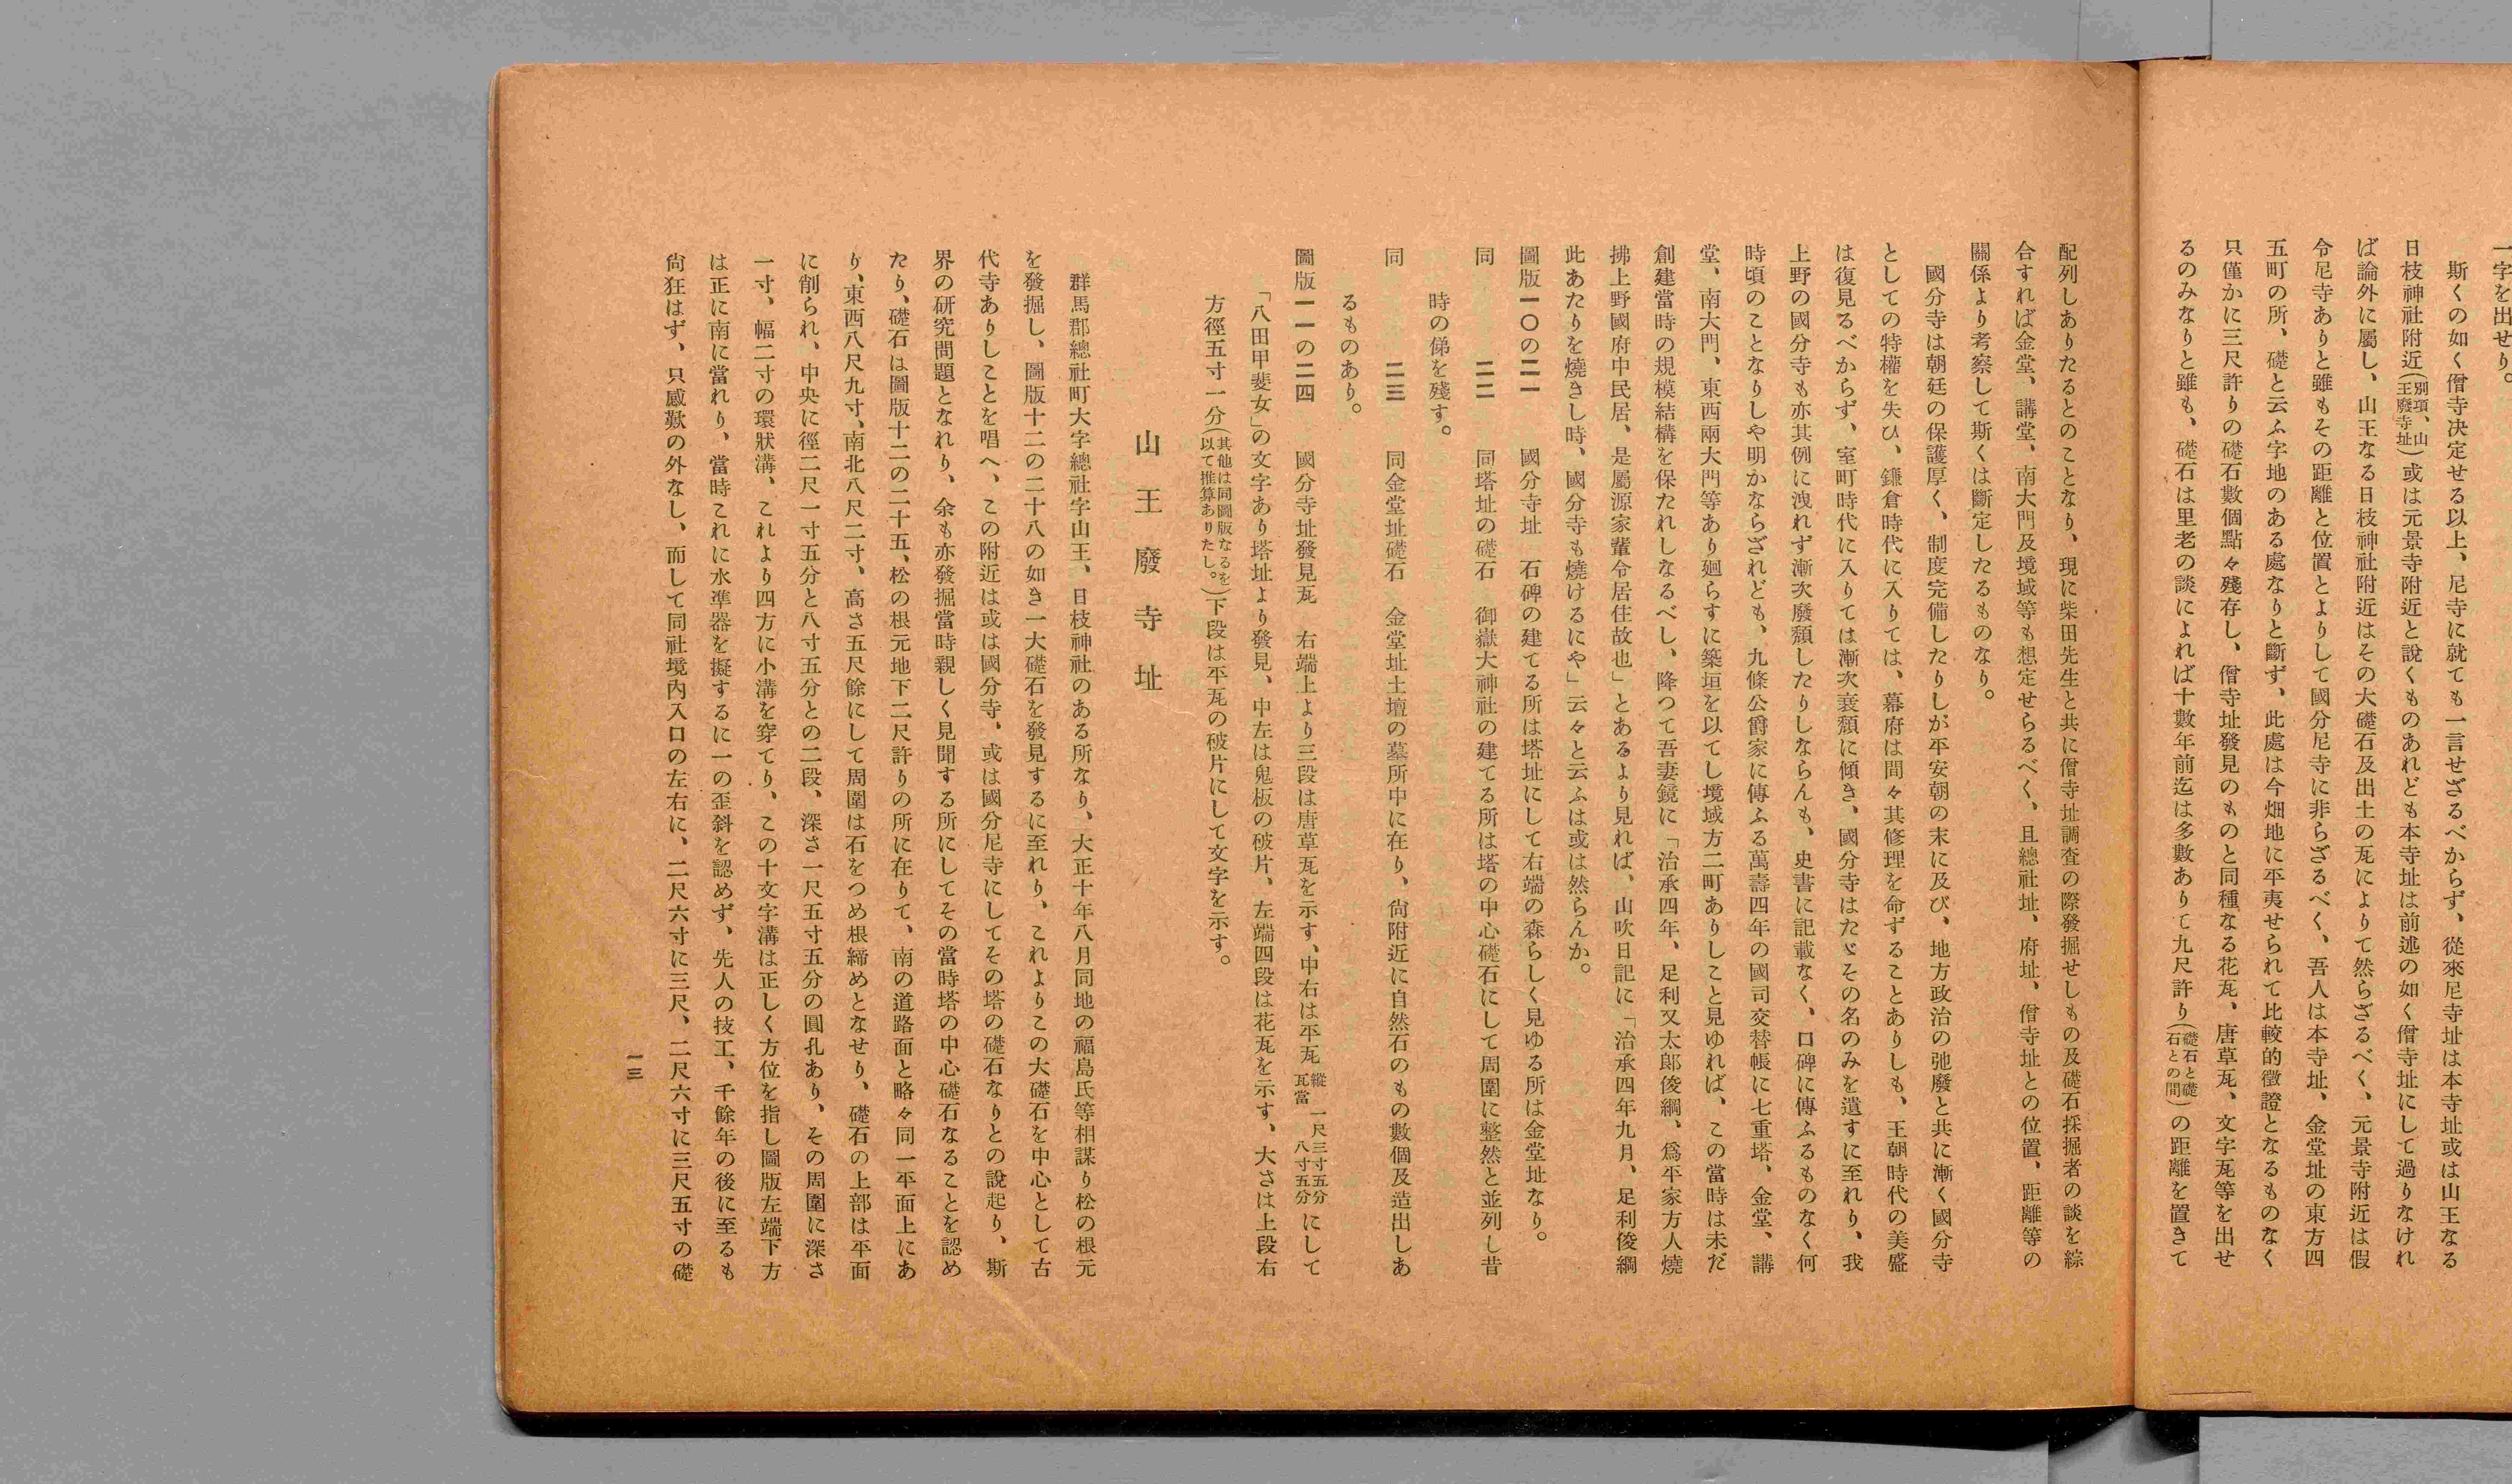 一字を出せり。
斯くの如く僧寺決定せる以上、尼寺に就ても一言せざるべからず、從來尼寺址は本寺址或は山王なる
日枝神社附近(別項、山王廢寺址)或は元景寺附近と說くものあれども本寺址は前述の如く僧寺址にして過りなけれ
ば論外に屬し、山王なる日枝神社附近はその大礎石及出土の瓦によりて然らざるべく、元景寺附近は假
令尼寺ありと雖もその距離と位置とよりして國分尼寺に非らざるべく、吾人は本寺址、金堂址の東方四
五町の所、礎と云ふ字地のある處なりと斷ず、此處は今畑地に平夷せられて比較的徵證となるものなく
只僅かに三尺許りの礎石數個點々殘存し、僧寺址發見のものと同種なる花瓦、唐草瓦、文字瓦等を出せ
るのみなりと雖も、礎石は里老の談によれば十數年前迄は多數ありて九尺許り(礎石と礎石との間)の距離を置きて
配列しありたるとのことなり、現に柴田先生と共に僧寺址調査の際發掘せしもの及礎石採掘者の談を綜
合すれば金堂、講堂、南大門及境域等も想定せらるべく、且總社址、府址、僧寺址との位置、距離等の
關係より考察して斯くは斷定したるものなり。
國分寺は朝廷の保護厚く、制度完備したりしが平安朝の末に及び、地方政治の弛廢と共に漸く國分寺
としての特權を失ひ、鎌倉時代に入りては、幕府は間々其修理を命ずることありしも、王朝時代の美盛
は復見るべからず、室町時代に入りては漸次衰頽に傾き、國分寺はたゞその名のみを遺すに至れり、我
上野の國分寺も亦其例に洩れず漸次廢頽したりしならんも、史書に記載なく、口碑に傳ふるものなく何
時頃のことなりしや明かならざれども、九條公爵家に傳ふる萬壽四年の國司交替帳に七重塔、金堂、講
堂、南大門、東西兩大門等あり廻らすに築垣を以てし境域方二町ありしこと見ゆれば、この當時は未だ
創建當時の規模結構を保たれしなるべし、降つて吾妻鏡に「治承四年、足利又太郎俊綱、爲平家方人燒
拂上野國府中民居、是屬源家輩令居住故也」とあるより見れば、山吹日記に「治承四年九月、足利俊綱
此あたりを燒きし時、國分寺も燒けるにや」云々と云ふは或は然らんか。
圖版一〇の二一　國分寺址　石碑の建てる所は塔址にして右端の森らしく見ゆる所は金堂址なり。
同　二二　同塔址の礎石　御嶽大神社の建てる所は塔の中心礎石にして周圍に整然と並列し昔
時の俤を殘す。
同　二三　同金堂址礎石　金堂址土壇の墓所中に在り、尙附近に自然石のもの數個及造出しあ
るものあり。
圖版一一の二四　國分寺址發見瓦　右端上より三段は唐草瓦を示す、中右は平瓦 縱一尺三寸五分 瓦當八寸五分 にして
「八田甲斐女」の文字あり塔址より發見、中左は鬼板の破片、左端四段は花瓦を示す、大さは上段右
方徑五寸一分(其他は同圖版なるを以て推算ありたし。)下段は平瓦の破片にして文字を示す。
山王廢寺址
群馬郡總社町大字總社字山王、日枝神社のある所なり、大正十年八月同地の福島氏等相謀り松の根元
を發掘し、圖版十二の二十八の如き一大礎石を發見するに至れり、これよりこの大礎石を中心として古
代寺ありしことを唱へ、この附近は或は國分寺、或は國分尼寺にしてその塔の礎石なりとの說起り、斯
界の研究問題となれり、余も亦發掘當時親しく見聞する所にしてその當時塔の中心礎石なることを認め
たり、礎石は圖版十二の二十五、松の根元地下二尺許りの所に在りて、南の道路面と略々同一平面上にあ
り、東西八尺九寸、南北八尺二寸、高さ五尺餘にして周圍は石をつめ根締めとなせり、礎石の上部は平面
に削られ、中央に徑二尺一寸五分と八寸五分との二段、深さ一尺五寸五分の圓孔あり、その周圍に深さ
一寸、幅二寸の環狀溝、これより四方に小溝を穿てり、この十文字溝は正しく方位を指し圖版左端下方
は正に南に當れり、當時これに水準器を擬するに一の歪斜を認めず、先人の技工、千餘年の後に至るも
尙狂はず、只感歎の外なし、而して同社境內入口の左右に、二尺六寸に三尺、二尺六寸に三尺五寸の礎
一三